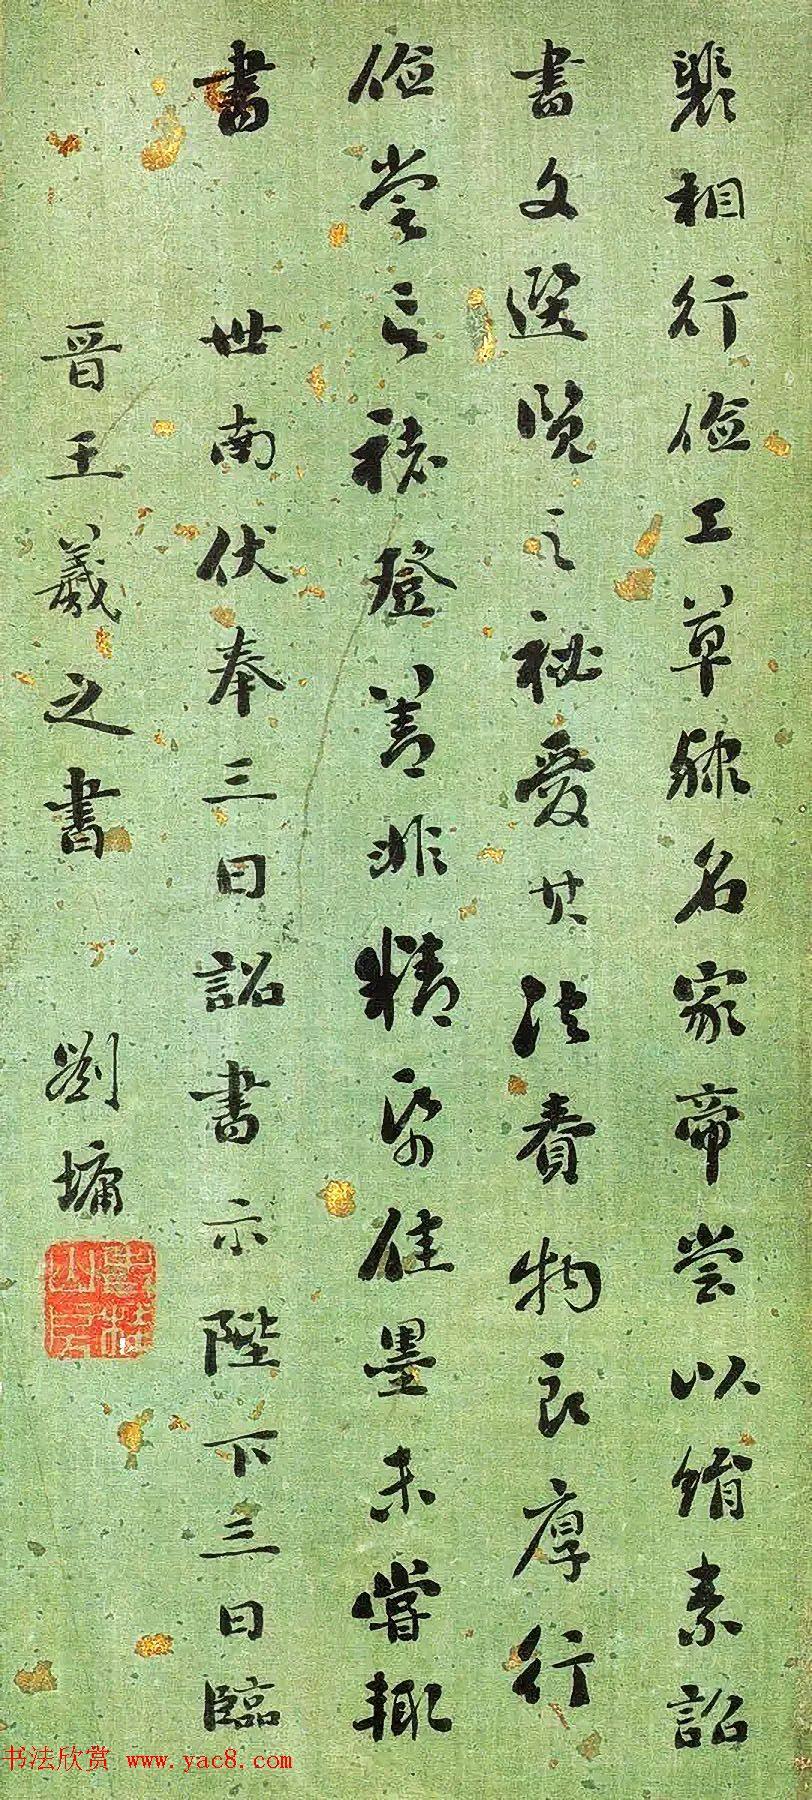 裴相行儉工草隸名家帝尝以絹素詔
書文選覽之祕愛其法賚物良厚行
儉尝言褚登善非精筆佳墨未嘗輒
書　世南伏奉三日詔書示陛下三日臨
晉王羲之書　劉墉
书法欣赏 www.yac8.com